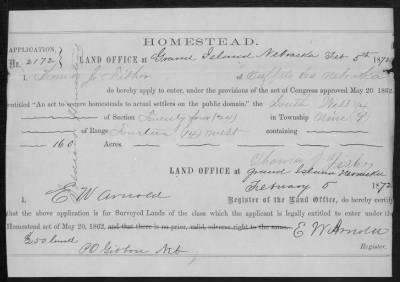 HOMESTEAD.
APPLICATION, No. 2172 LAND OFFICE at Grand Island Nebraska Feb 5th 1872
I, Thomas J Fisher of Buffalo Co Nebraska
do hereby apply to enter, under the provisions of the act of Congress approved May 20, 1862,
entitled "An act to secure homesteads to actual settlers on the public domain," the South West ¼
of Section Twenty four (24) in Township Nine (9)
of Range Fourteen (14) West containing
160 Acres.
Thomas J Fisher
LAND OFFICE at Grand Island Nebraska
February 5 1872
I, E W Arnold Register of the Land Office, do hereby certify
that the above application is for Surveyed Lands of the class which the applicant is legally entitled to enter under the
Homestead act of May 20, 1862, and that there is no prior, valid, adverse right to the same.
E W Arnold
Register.
PO Gibbon Neb